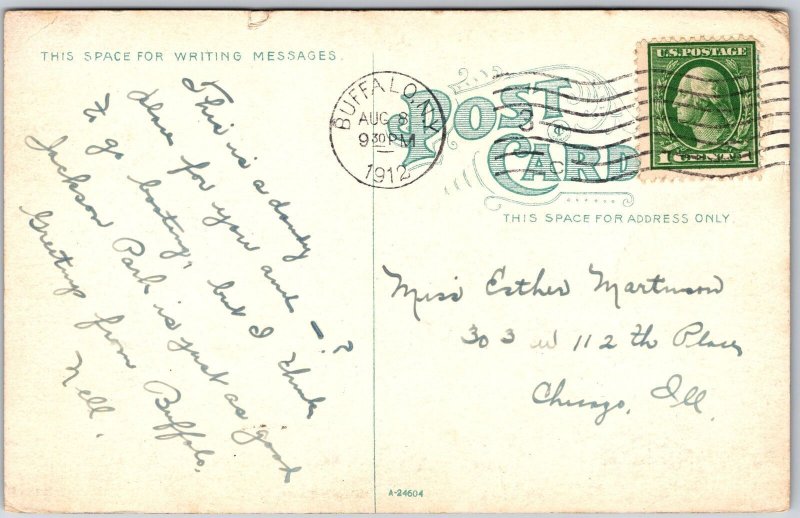 THIS SPACE FOR WRITING MESSAGES.
This is a dandy
place for you and — ?
to go boating, but I think
Jackson Park is just as good
Greetings from Buffalo,
Nell.
BUFFALO, N.Y.
AUG 8
9 30 PM
1912
3
C
POST CARD
U.S. POSTAGE
1 CENT 1
THIS SPACE FOR ADDRESS ONLY.
Miss Esther Martinson
303 W 112th Place
Chicago, Ill.
A-24604